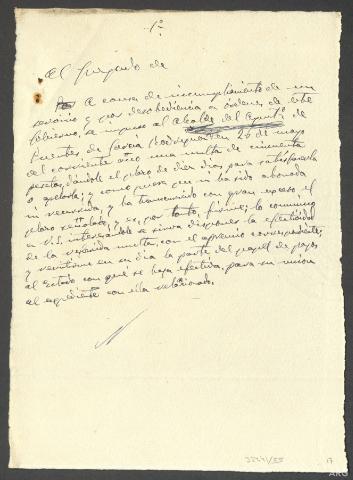 1º
Al Juzgado de
A causa de incumplimiento de un
servicio y por desobediencia a órdenes de este
Gobierno, se impuso al Alcalde del Ayuntº de
Puentes de García Rodríguez en 26 de mayo
del corriente año una multa de cincuenta
pesetas, dándole el plazo de diez días para satisfacerla
o apelarla; y como quiera que ni ha sido abonada
ni recurrida, y ha transcurrido con gran exceso el
plazo señalado, y es, por tanto, firme; lo comunico
a V.S. interesándole se sirva disponer la efectividad
de la referida multa, con el apremio correspondiente;
y remitirme en su día la parte del papel de pagos
al Estado con que se haga efectiva, para su unión
al expediente con ella relacionado.
17
ARG